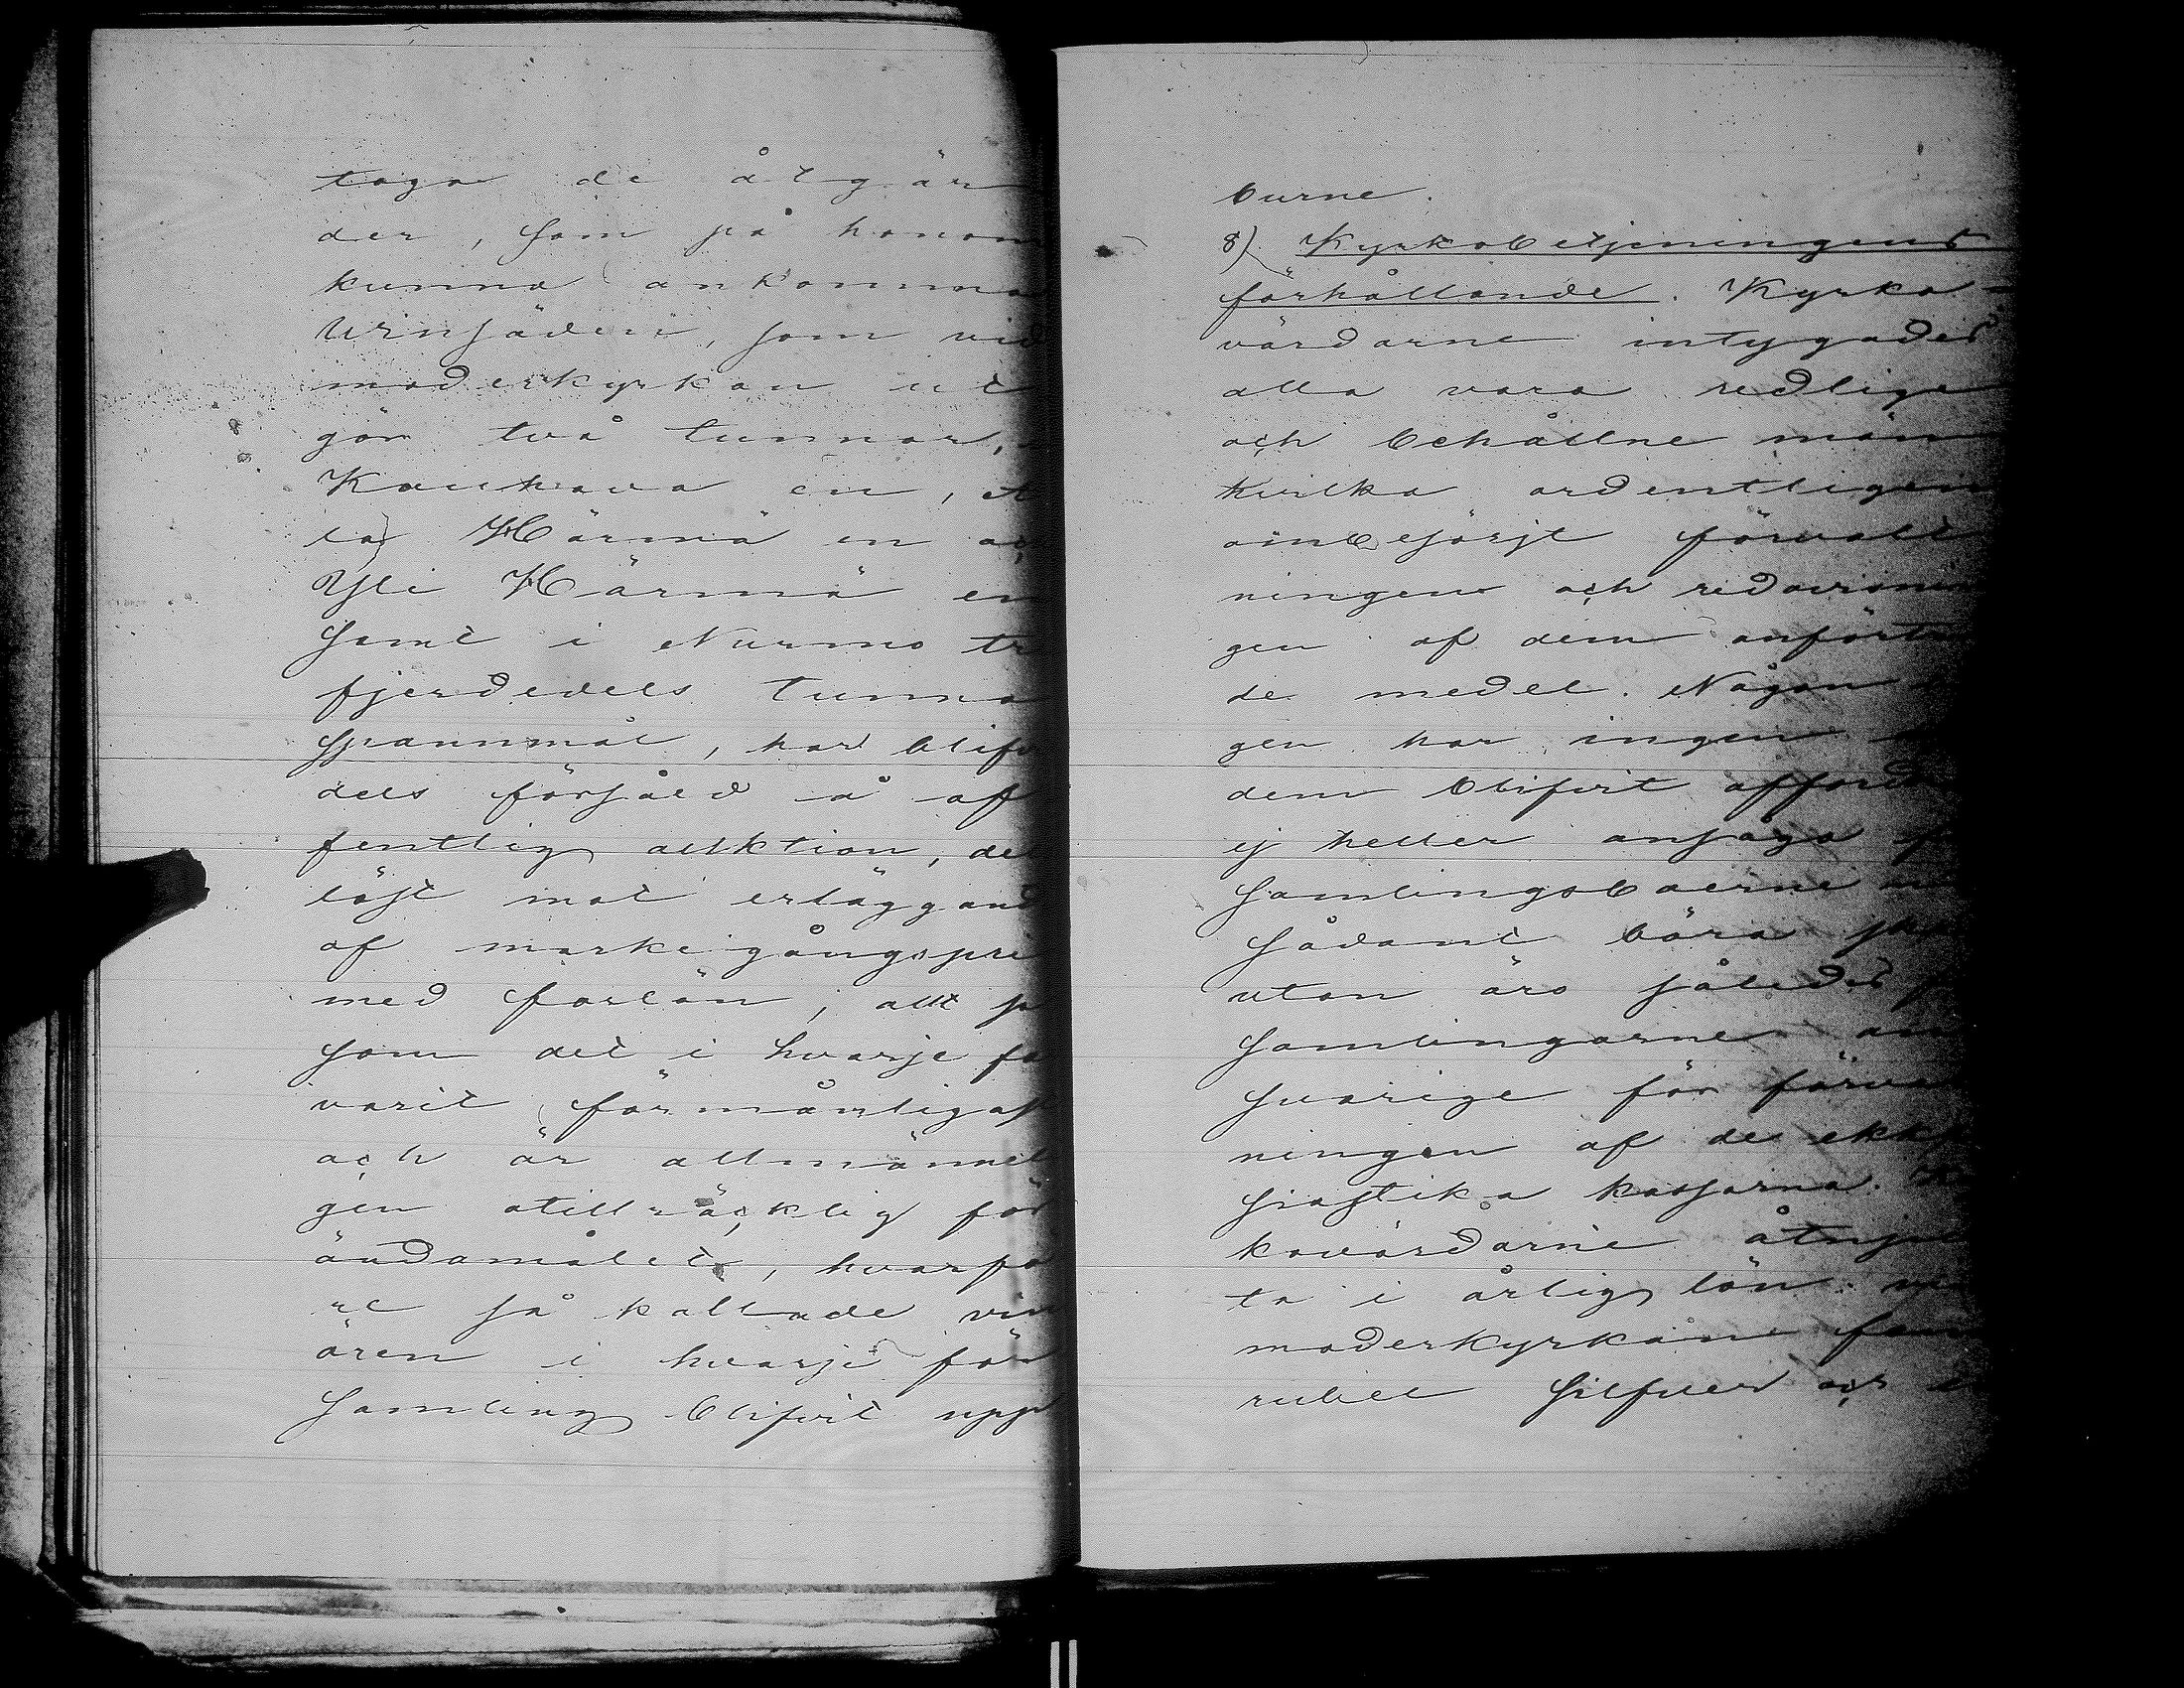 taga de åtgär
der, som på honom
kunna ankomma
Vinsäden, som vid
moderkyrkan ut
gör två tunnor,
Kauhava en, A
la Härmä en och
Yli Härmä en
samt i Nurmo tre
fjerdedels tunna
spannmål, har blifvit
dels försåld å of
fentlig auktion, dels
löst mot erläggande
af markegångspris
med forlön, allt så
som det i hvarje fall
varit förmånligast
och är allmänneli
gen otillräcklig för
ändamålet, hvarför
et så kallade vin
ören i hvarje för
samling blifvit upp
burne.
8) Kyrkobetjeningens
förhållande. Kyrko-
värdarne intygades
alla vara redlige
och behållne män
hvilka ordentligen
ombesörjt förvalt
ningen och redovisnin
gen af dem anförtro
de medel. Någon
gen har ingen
dem blifvit affordrad
ej heller ansågo för
samlingsboerne
sådant böra
utan äro således för
samlingarne an
svarige för förvalt
ningen af de ekkle
siastika kassorna. Kyr
kovärdarne åtnju
ta i årlig lön: vid
moderkyrkan fem
rubel silfver och